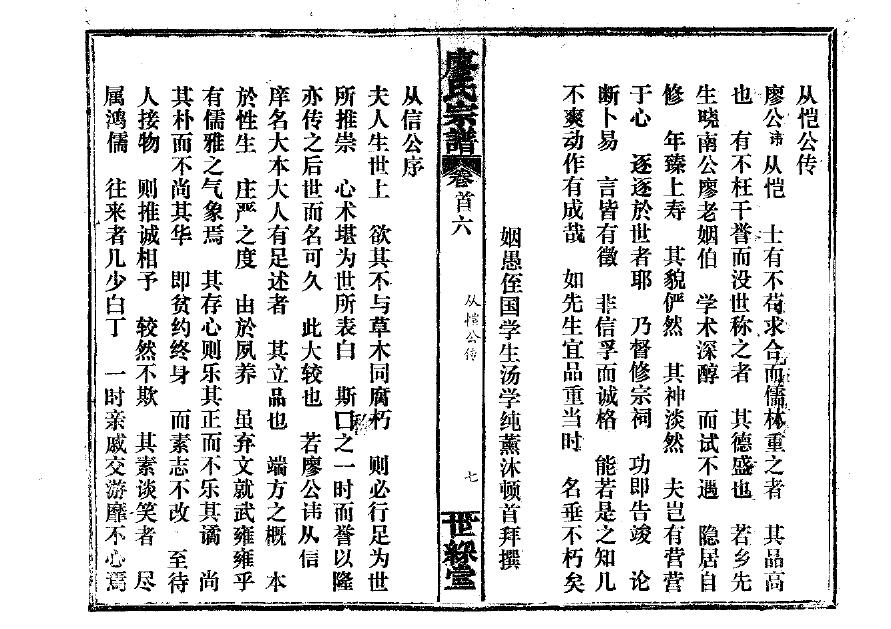 从恺公传
廖公讳从恺 士有不苟求合而儒林重之者 其品高
也 有不枉干誉而没世称之者 其德盛也 若乡先
生晓南公廖老姻伯 学术深醇 而试不遇 隐居自
修 年臻上寿 其貌俨然 其神淡然 夫岂有营营
于心 逐逐於世者耶 乃督修宗祠 功即告竣 论
断卜易 言皆有徵 非信孚而诚格 能若是之知几
不爽动作有成哉 如先生宜品重当时 名垂不朽矣
姻愚侄国学生汤学纯薰沐顿首拜撰
廖氏宗譜 卷首六 从恺公传 七 世綵堂
从信公序
夫人生世上 欲其不与草木同腐朽 则必行足为世
所推崇 心术堪为世所表白 斯口之一时而誉以隆
亦传之后世而名可久 此大较也 若廖公讳从信
庠名大本大人有足述者 其立品也 端方之概 本
於性生 庄严之度 由於夙养 虽弃文就武雍雍乎
有儒雅之气象焉 其存心则乐其正而不乐其谲 尚
其朴而不尚其华 即贫约终身 而素志不改 至待
人接物 则推诚相予 较然不欺 其素谈笑者 尽
属鸿儒 往来者几少白丁 一时亲戚交游靡不心焉